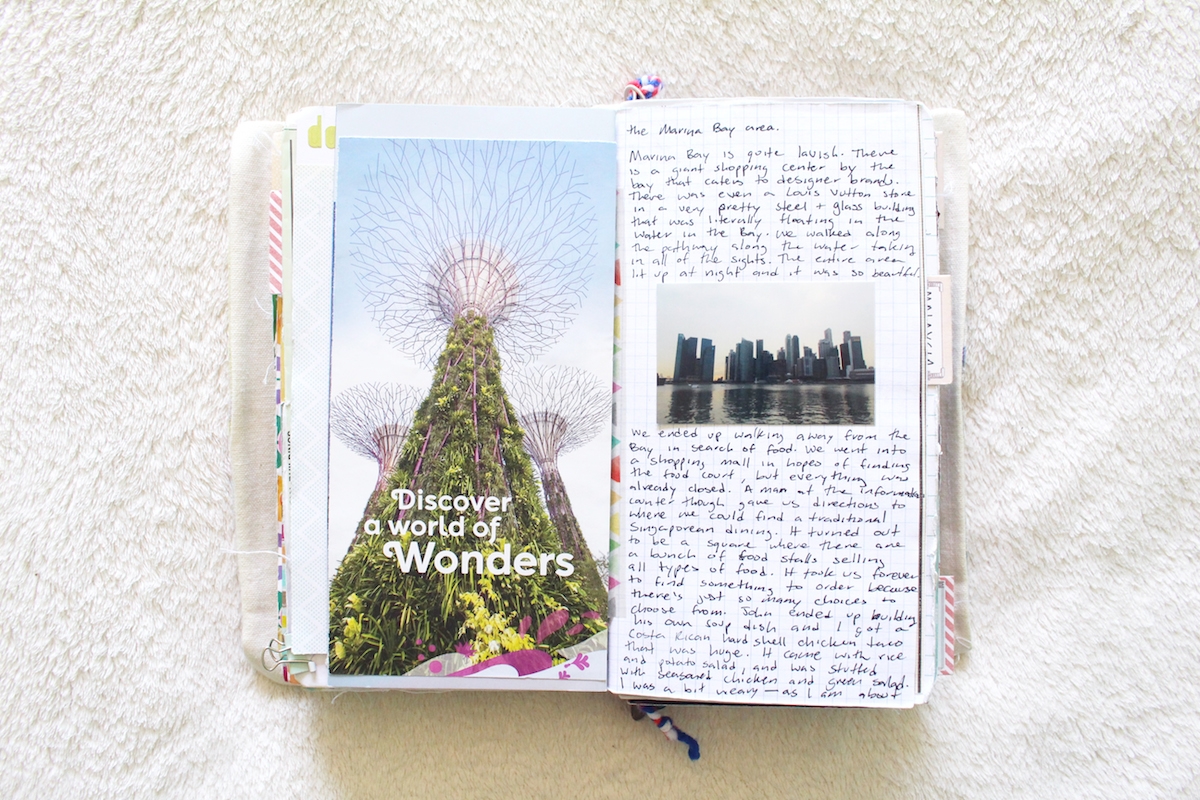 Discover
a world of
Wonders
the Marina Bay area.
Marina Bay is quite lavish. There
is a giant shopping center by the
bay that caters to designer brands.
There was even a Louis Vutton store
in a very pretty steel + glass building
that was literally floating in the
water in the Bay. We walked along
the pathway along the water taking
in all of the sights. The entire area
lit up at night and it was so beautiful.
We ended up walking away from the
Bay in search of food. We went into
a shopping mall in hopes of finding
the food court, but everything was
already closed. A man at the information
counter though gave us directions to
where we could find a traditional
Singaporean dining. It turned out
to be a square where there are
a bunch of food stalls selling
all types of food. It took us forever
to find something to order because
there's just so many choices to
choose from. John ended up building
his own soup dish and I got a
Costa Rican hard shell chicken taco
that was huge. It came with rice
and potato salad, and was stuffed
with seasoned chicken and green salad.
I was a bit weary — as I am about
MALAYSIA